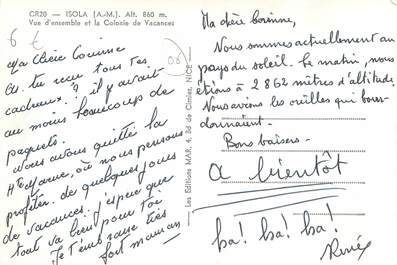 CR20 - ISOLA (A.-M.). Alt. 860 m.
Vue d'ensemble et la Colonie de Vacances
6 €
Ma Chère Corinne
As tu reçu tous tes
cadeaux ? il y avait
au moins beaucoup de
paquets.
Nous avons quitté la
Hte Marne, où nous pensons
profiter de quelques jours
de vacances. j'espère que
tout va bien pour toi
Je t'embrasse très
fort maman
Les Editions MAR, 4, Bd de Cimiez, NICE
Ma chère Corinne,
Nous sommes actuellement au
pays du soleil. Ce matin, nous
étions à 2 862 mètres d'altitude.
Nous avions les oreilles qui bour-
donnaient.
Bons baisers.
A bientôt
ha! ha! ha!
René